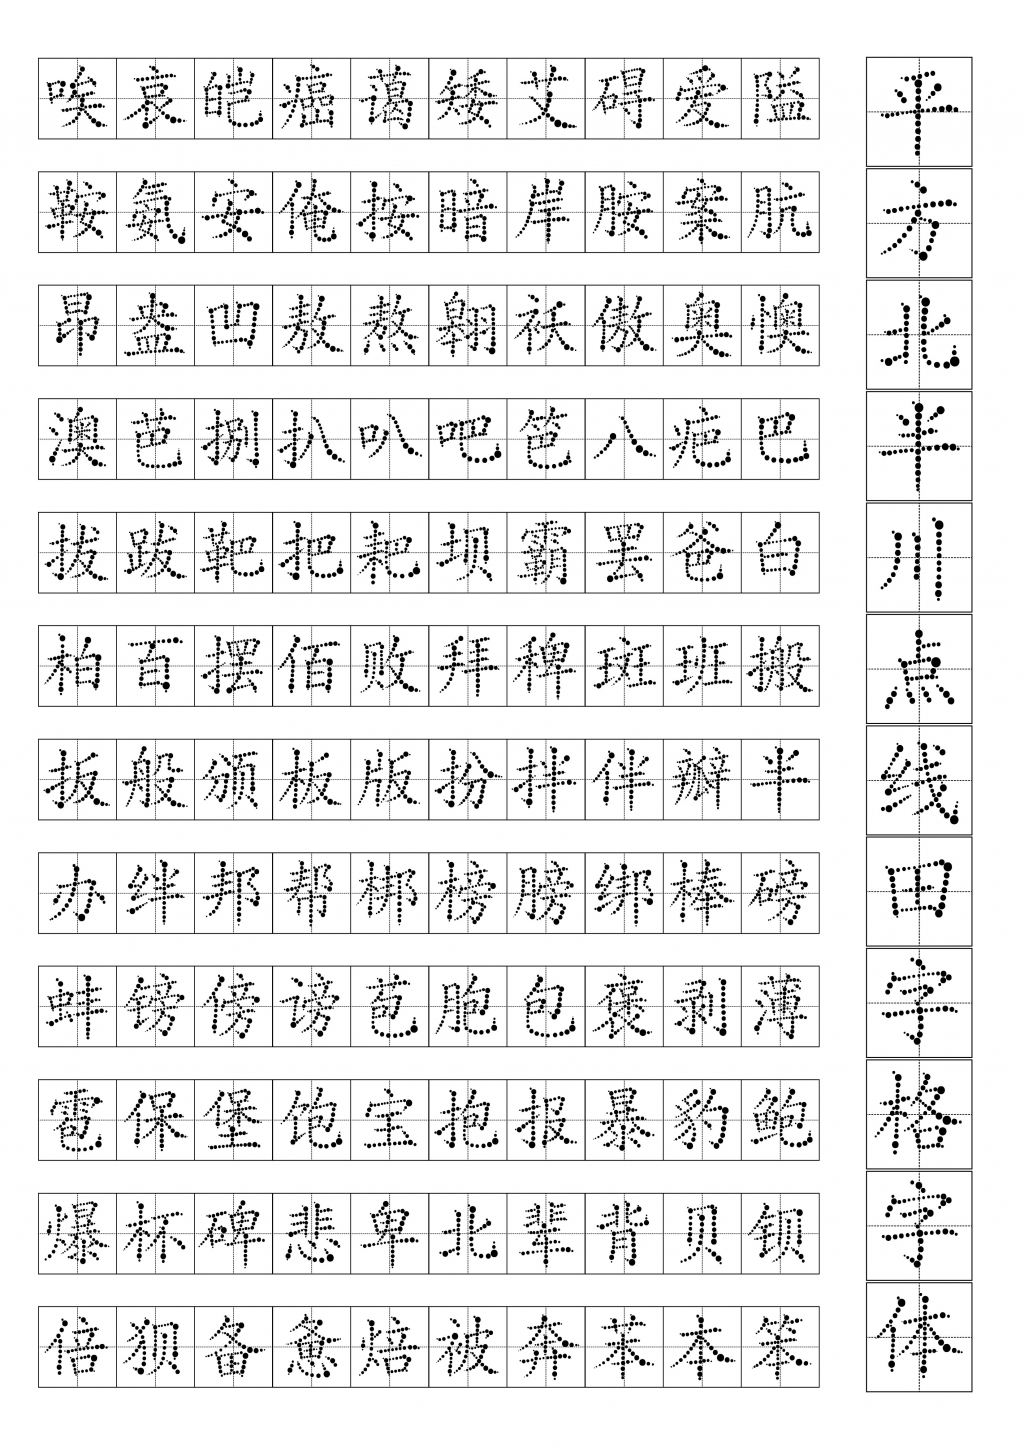 唉哀皑癌蔼矮艾碍爱隘
鞍氨安俺按暗岸胺案肮
昂盎凹敖熬翱袄傲奥懊
澳芭捌扒叭吧笆八疤巴
拔跋靶把耙坝霸罢爸白
柏百摆佰败拜稗斑班搬
扳般颁板版扮拌伴瓣半
办绊邦帮梆榜膀绑棒磅
蚌镑傍谤苞胞包褒剥薄
雹保堡饱宝抱报暴豹鲍
爆杯碑悲卑北辈背贝钡
倍狈备惫焙被奔苯本笨
平方北半川点线田字格字体